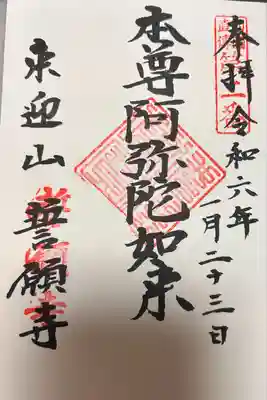 奉拝
令和六年
一月二十三日
本尊阿弥陀如来
来迎山
誓願寺